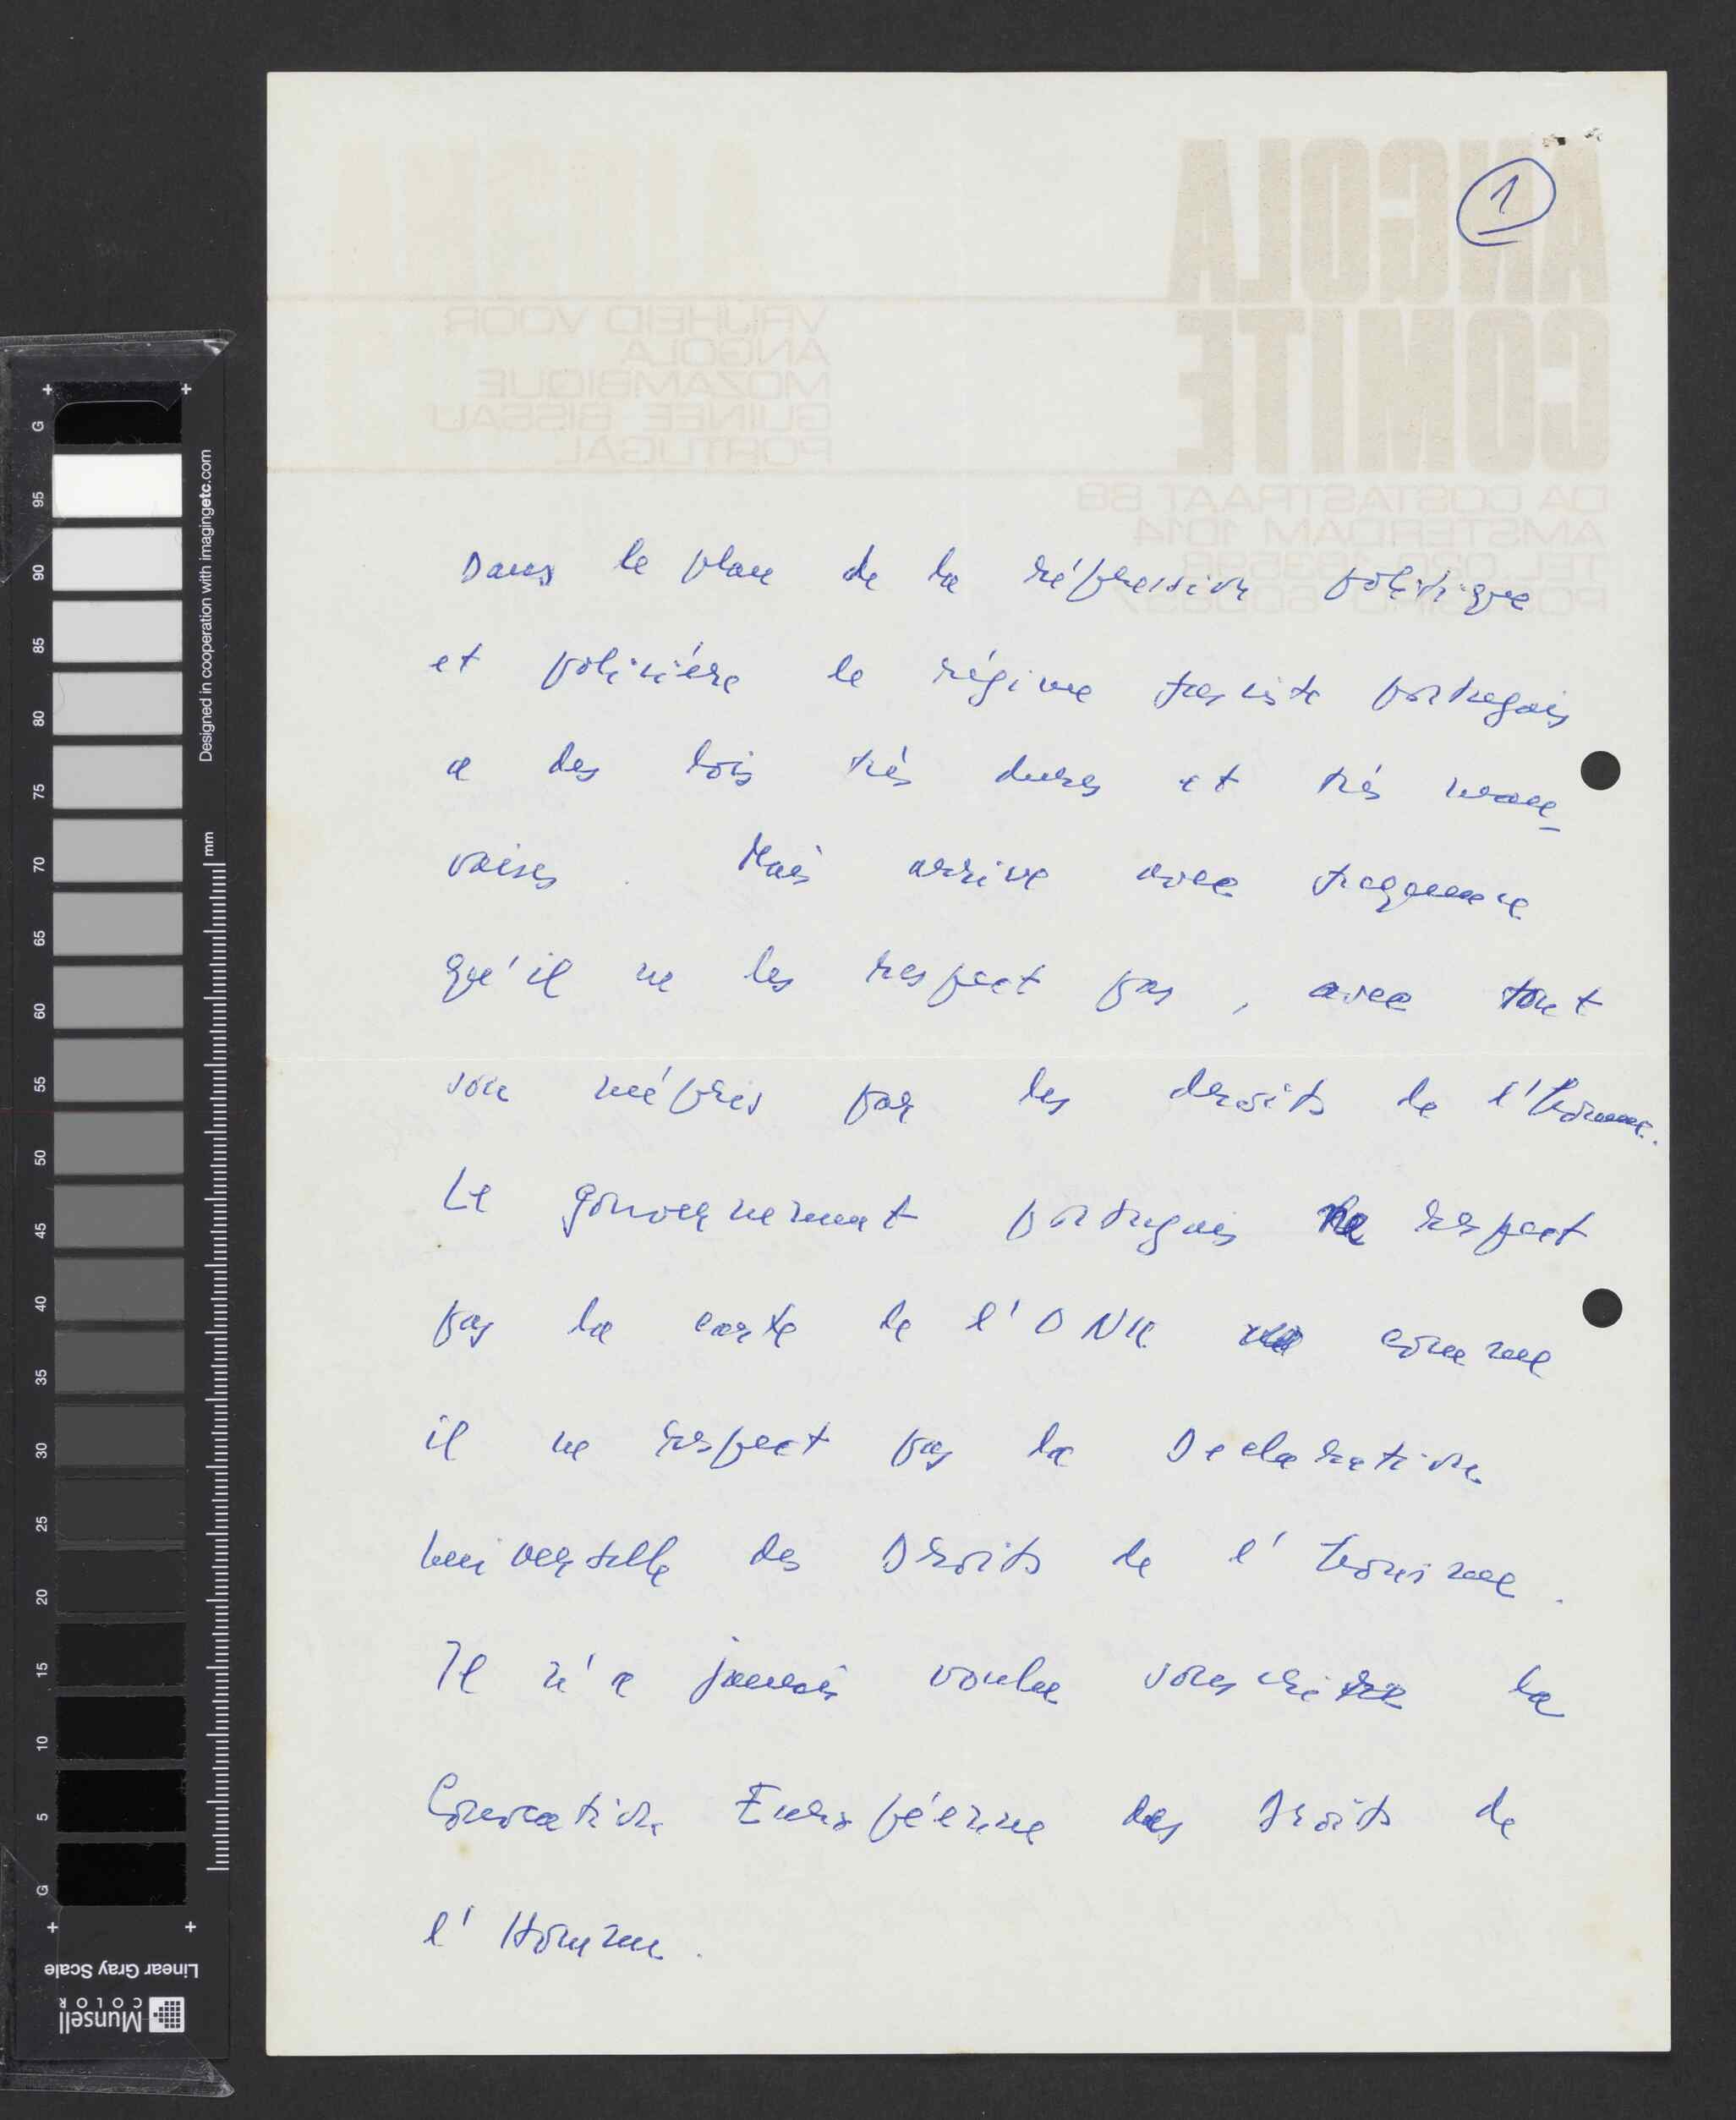 1
ANGOLA
COMITE
VRIJHEID VOOR
ANGOLA
MOZAMBIQUE
GUINEE BISSAU
PORTUGAL
DA COSTASTRAAT 88
AMSTERDAM 1014
Dans le plan de la répression politique
et policiére le régime fasciste portugais
a des lois trés dures et trés mau-
vaises. Mais arrive avec frequence
qu'il ne les respect pas, avec tout
son mépris par les droits de l'homme.
Le gouvernement portugais ne respect
pas la carte de l'ONU comme
il ne respect pas la Declaration
Universelle des Droits de l'homme.
Il n'a jamais voulu souscrire la
Convention Européenne des Droits de
l'Homme.
G
95
90
85
80
75
70
65
60
55
50
45
40
35
30
25
20
15
10
5
G
mm
Designed in cooperation with imagingetc.com
Linear Gray Scale
Munsell
COLOR